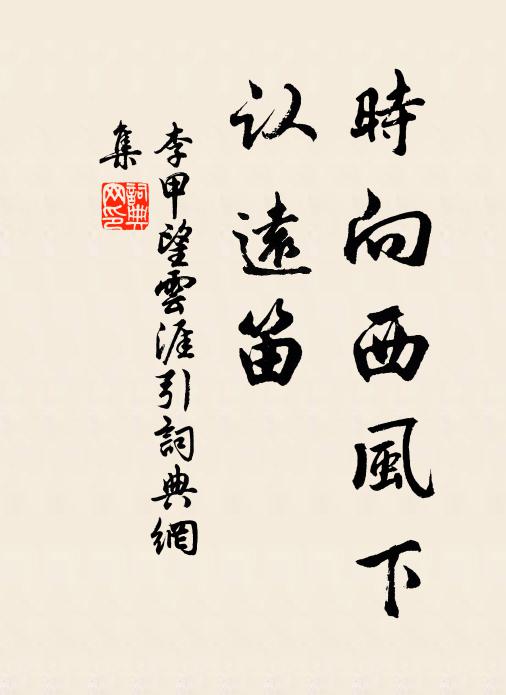 時向西風下
认遠笛
李甲望雲涯引詞典網
集
詞典
网印